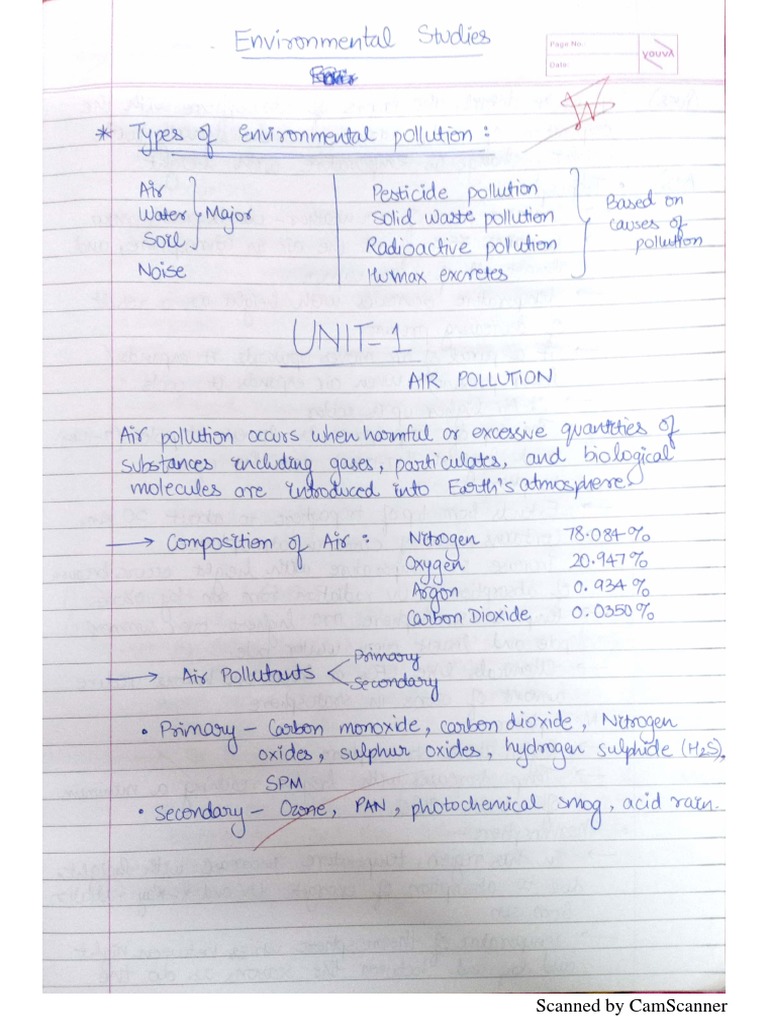 Environmental Studies
Page No.
Date:
youva
* Types of Environmental pollution:
Air
Water
Soil
Major
Noise
Pesticide pollution
Solid waste pollution
Radioactive pollution
Humax excretes
Based on
causes of
pollution
UNIT-1
AIR POLLUTION
Air pollution occurs when harmful or excessive quantities of
substances including gases, particulates, and biological
molecules are introduced into Earth's atmosphere
→ Composition of Air: Nitrogen 78.084%
Oxygen 20.947%
Argon 0.934%
Carbon Dioxide 0.0350%
→ Air Pollutants < Primary
Secondary
• Primary – Carbon monoxide, carbon dioxide, Nitrogen
oxides, sulphur oxides, hydrogen sulphide (H2S),
SPM
• Secondary – Ozone, PAN, photochemical smog, acid rain.
Scanned by CamScanner